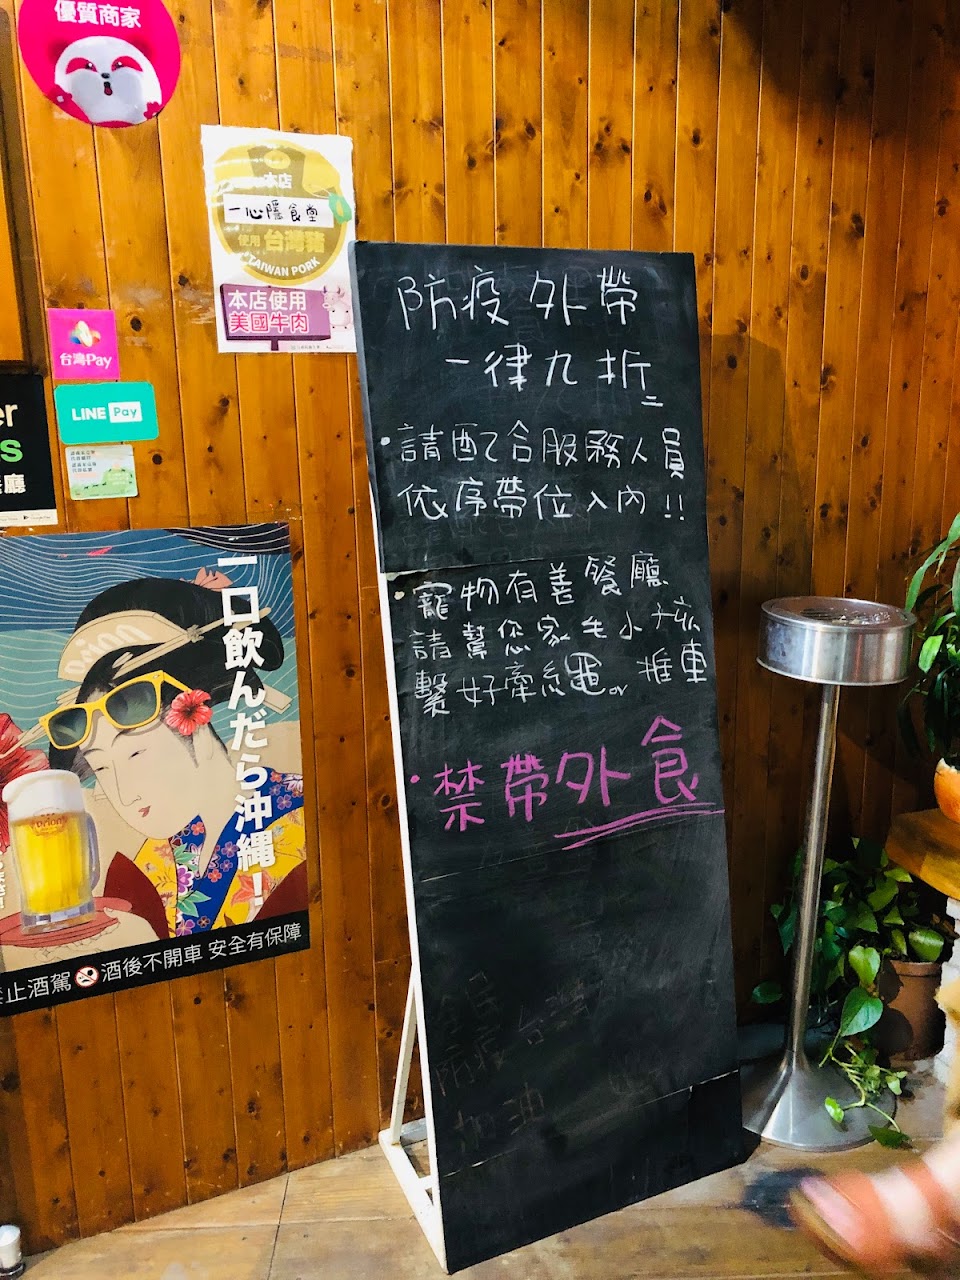 優質商家
本店
一心隱食堂
使用 台灣豬
TAIWAN PORK
本店使用
美國牛肉
台灣Pay
LINE Pay
er
s
廳
一口飲んだら沖縄！
Orion
禁止酒駕 酒後不開車 安全有保障
防疫外帶
一律九折
・請配合服務人員
依序帶位入內!!
・寵物有善餐廳
請幫您家毛小孩
繫好牽繩or推車
・禁帶外食
全民
防疫 台灣
加油